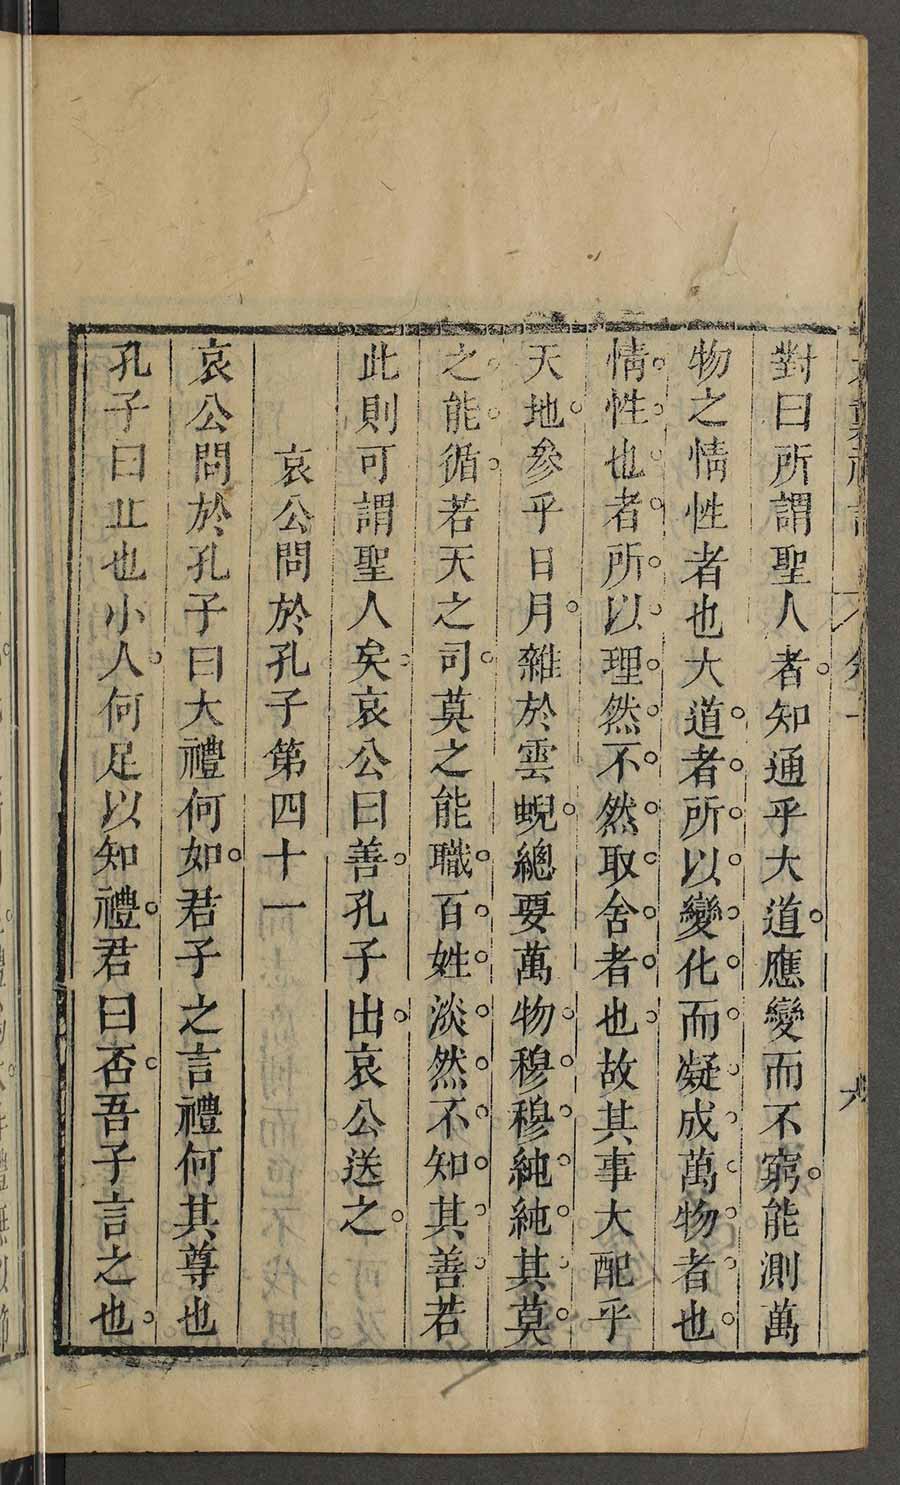 對曰所謂聖人者知通乎大道應變而不窮能測萬
物之情性者也大道者所以變化而凝成萬物者也
情性也者所以理然不然取舍者也故其事大配乎
天地參乎日月雜於雲蜺總要萬物穆穆純純其莫
之能循若天之司莫之能職百姓淡然不知其善若
此則可謂聖人矣哀公曰善孔子出哀公送之
哀公問於孔子第四十一
哀公問於孔子曰大禮何如君子之言禮何其尊也
孔子曰丘也小人何足以知禮君曰否吾子言之也